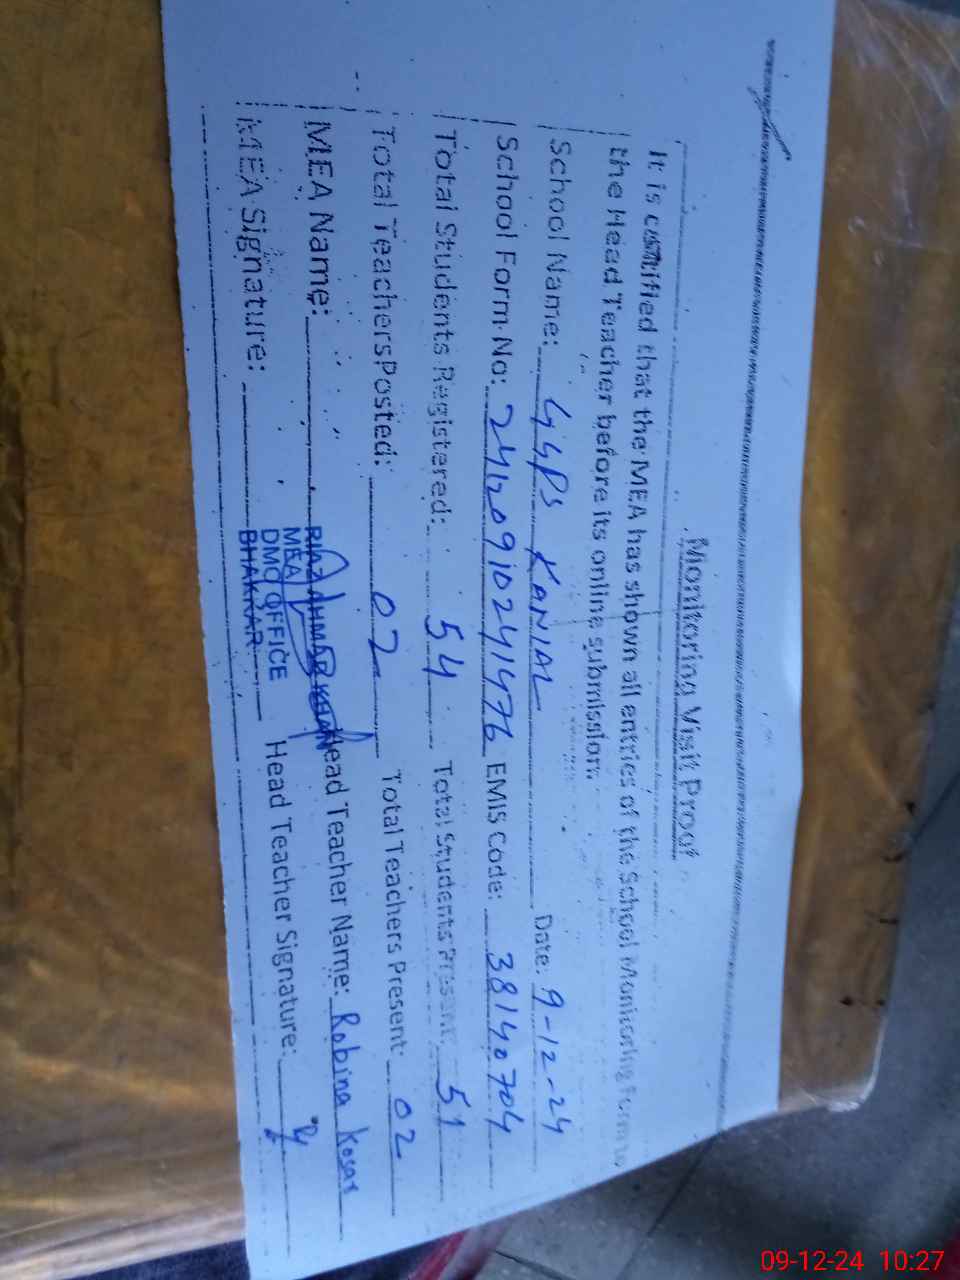 Monitoring Visit Proof
It is certified that the MEA has shown all entries of the School Monitoring Form to
the Head Teacher before its online submission.
School Name: GGPS KANIAL Date: 9-12-24
School Form No: 24120910241476 EMIS Code: 38140704
Total Students Registered: 54 Total Students Present: 51
Total Teachers Posted: 02 Total Teachers Present: 02
MEA Name: RIAZ AHMAD KHAN Head Teacher Name: Robina Kosar
MEA
MEA Signature: DMO OFFICE Head Teacher Signature:
BHAKKAR
09-12-24 10:27